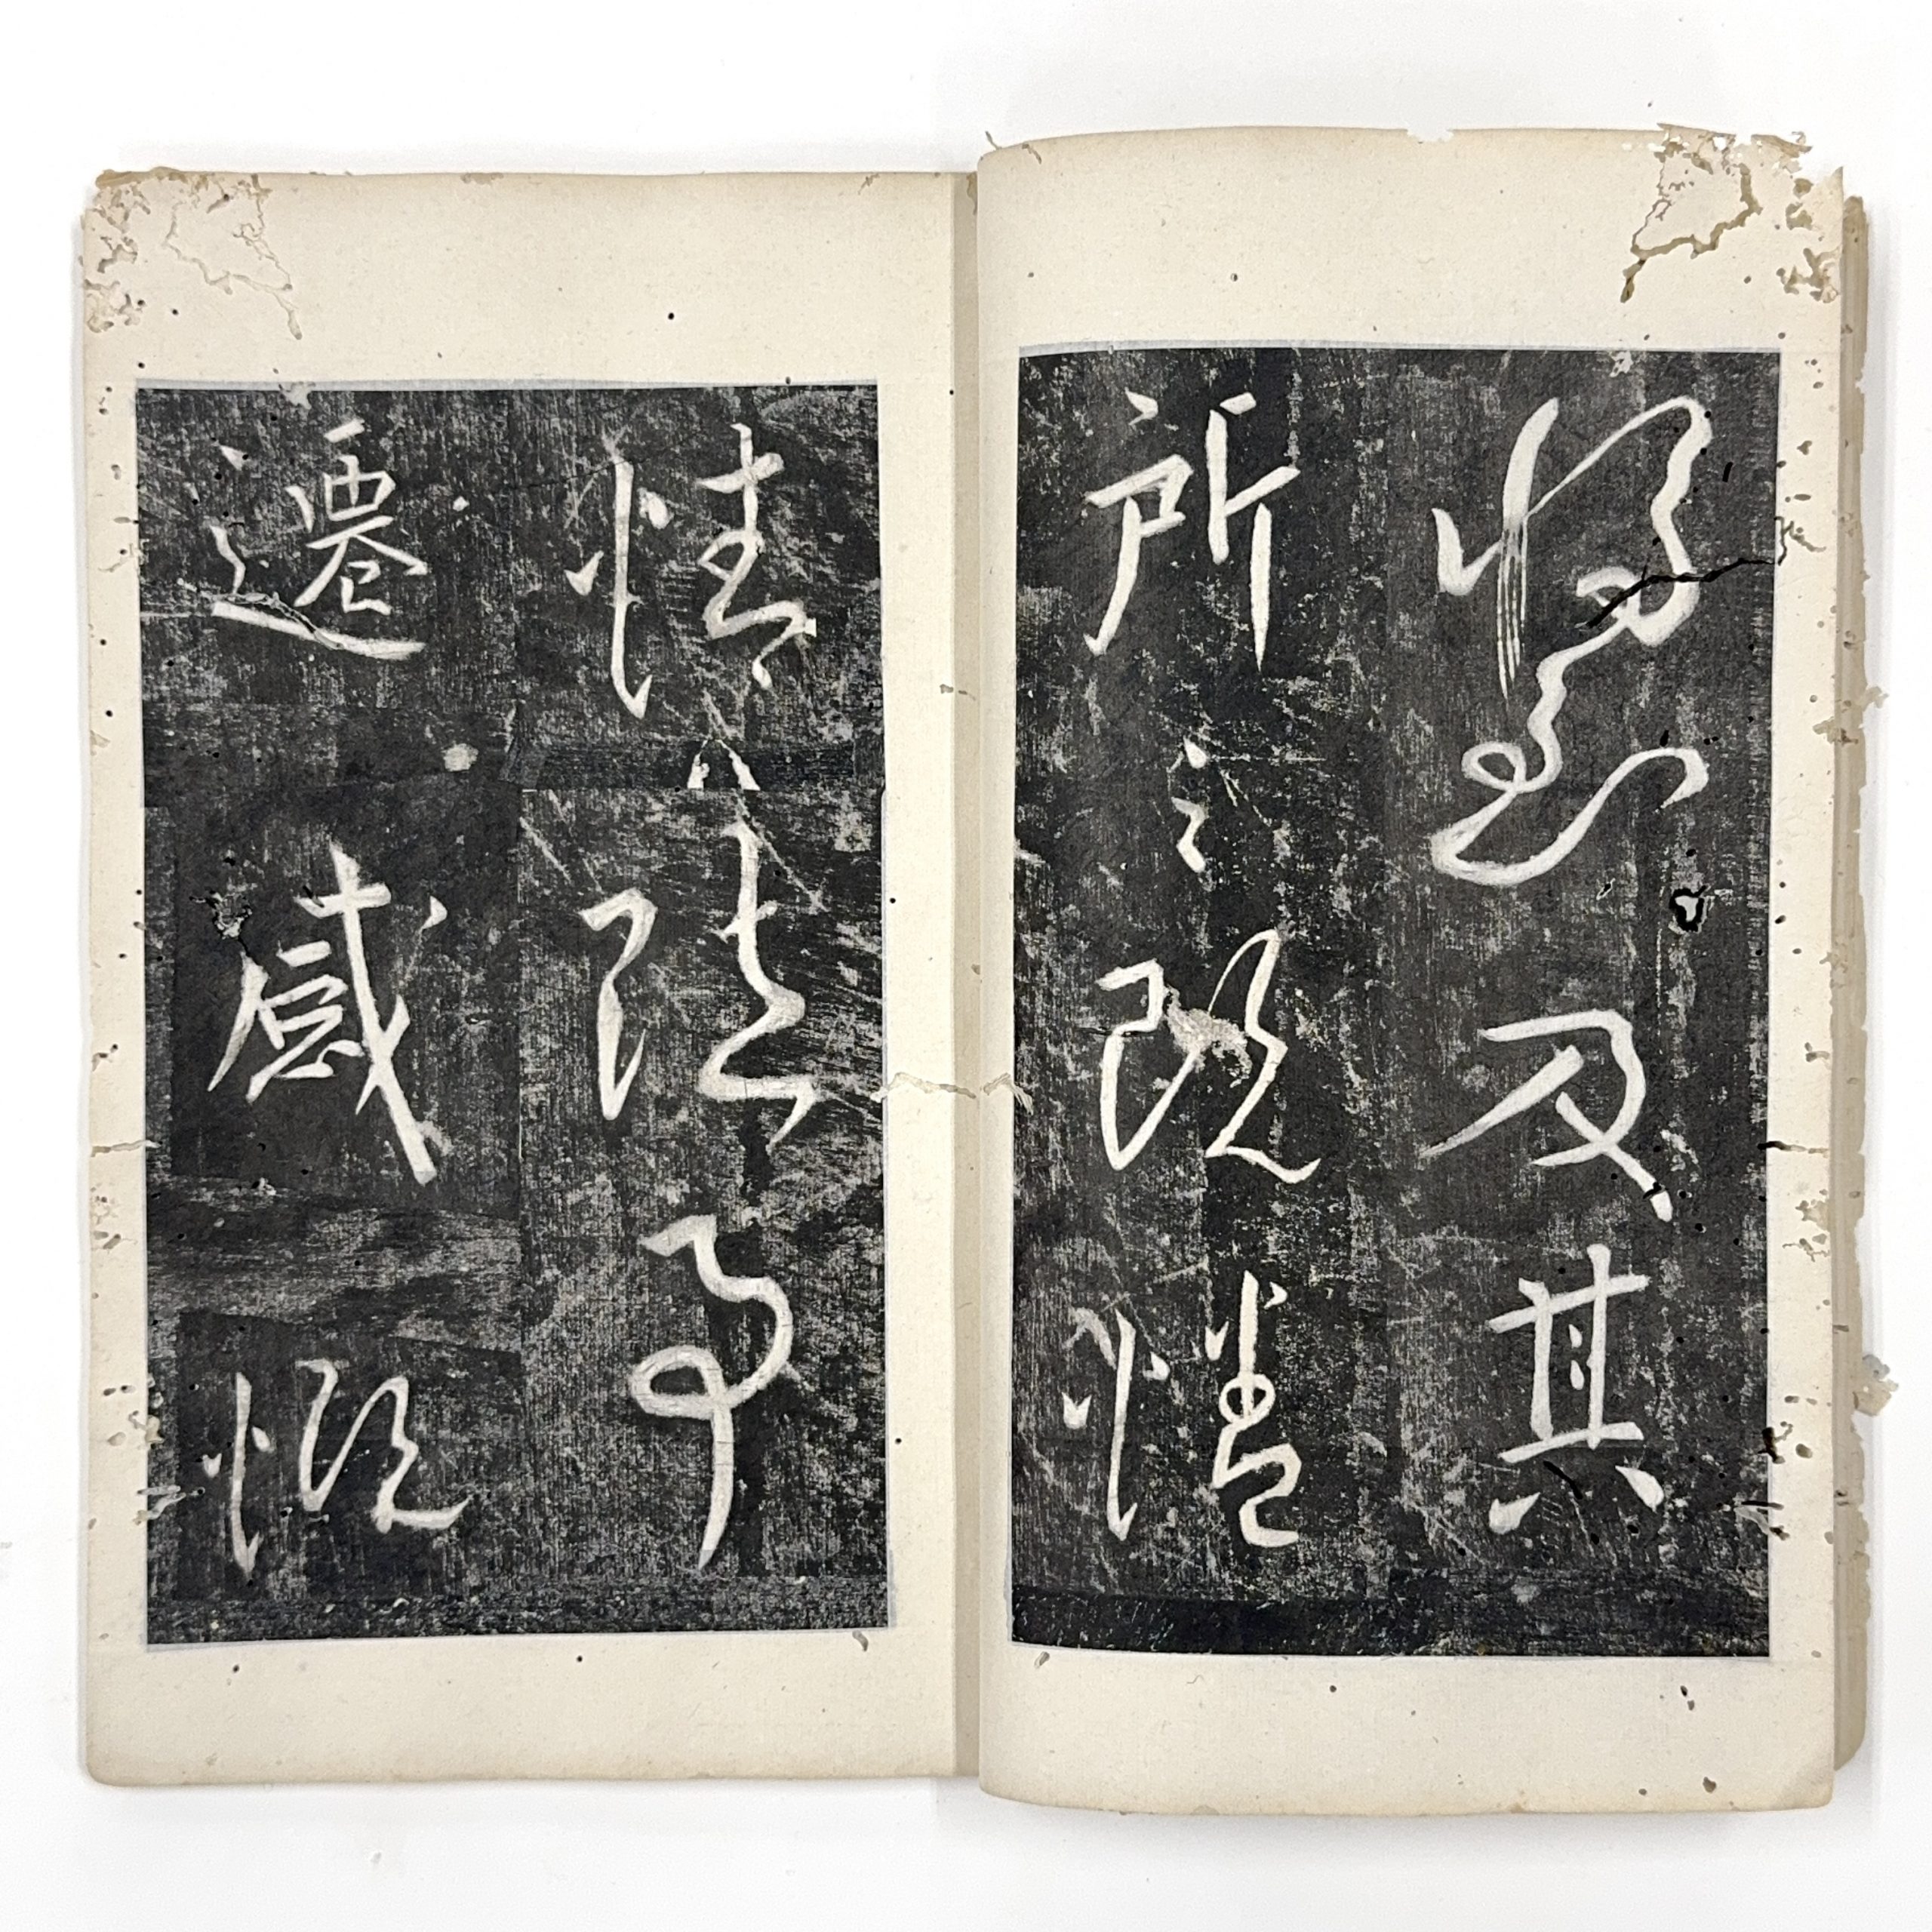 將至及其
所之既惓
情隨事
遷感慨